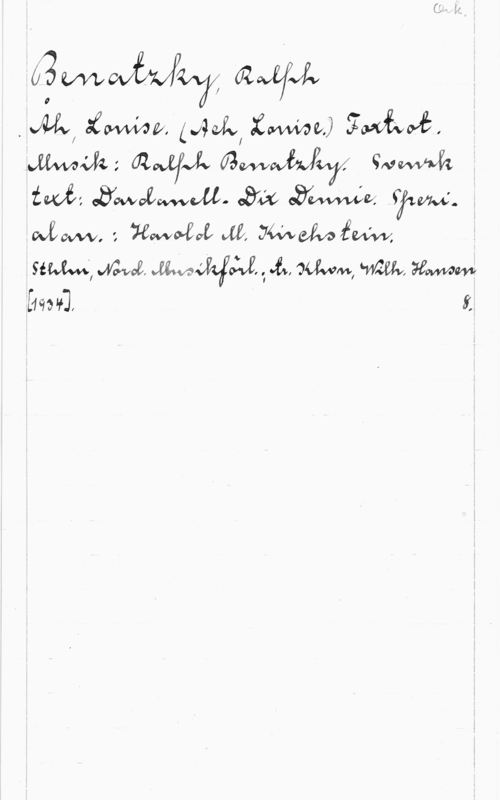 Ork.
Benatzky, Ralph
Åh, Louise. (Ach, Louise.) Foxtrot.
Musik: Ralph Benatzky. Svensk
text: Dardanell. Dix Dennie. Spezi-
alarr.: Harold M. Kirchstein.
Sthlm, Nord. Musikförl.; tr. Khvn, Wilh. Hansen
[1934]. 8.